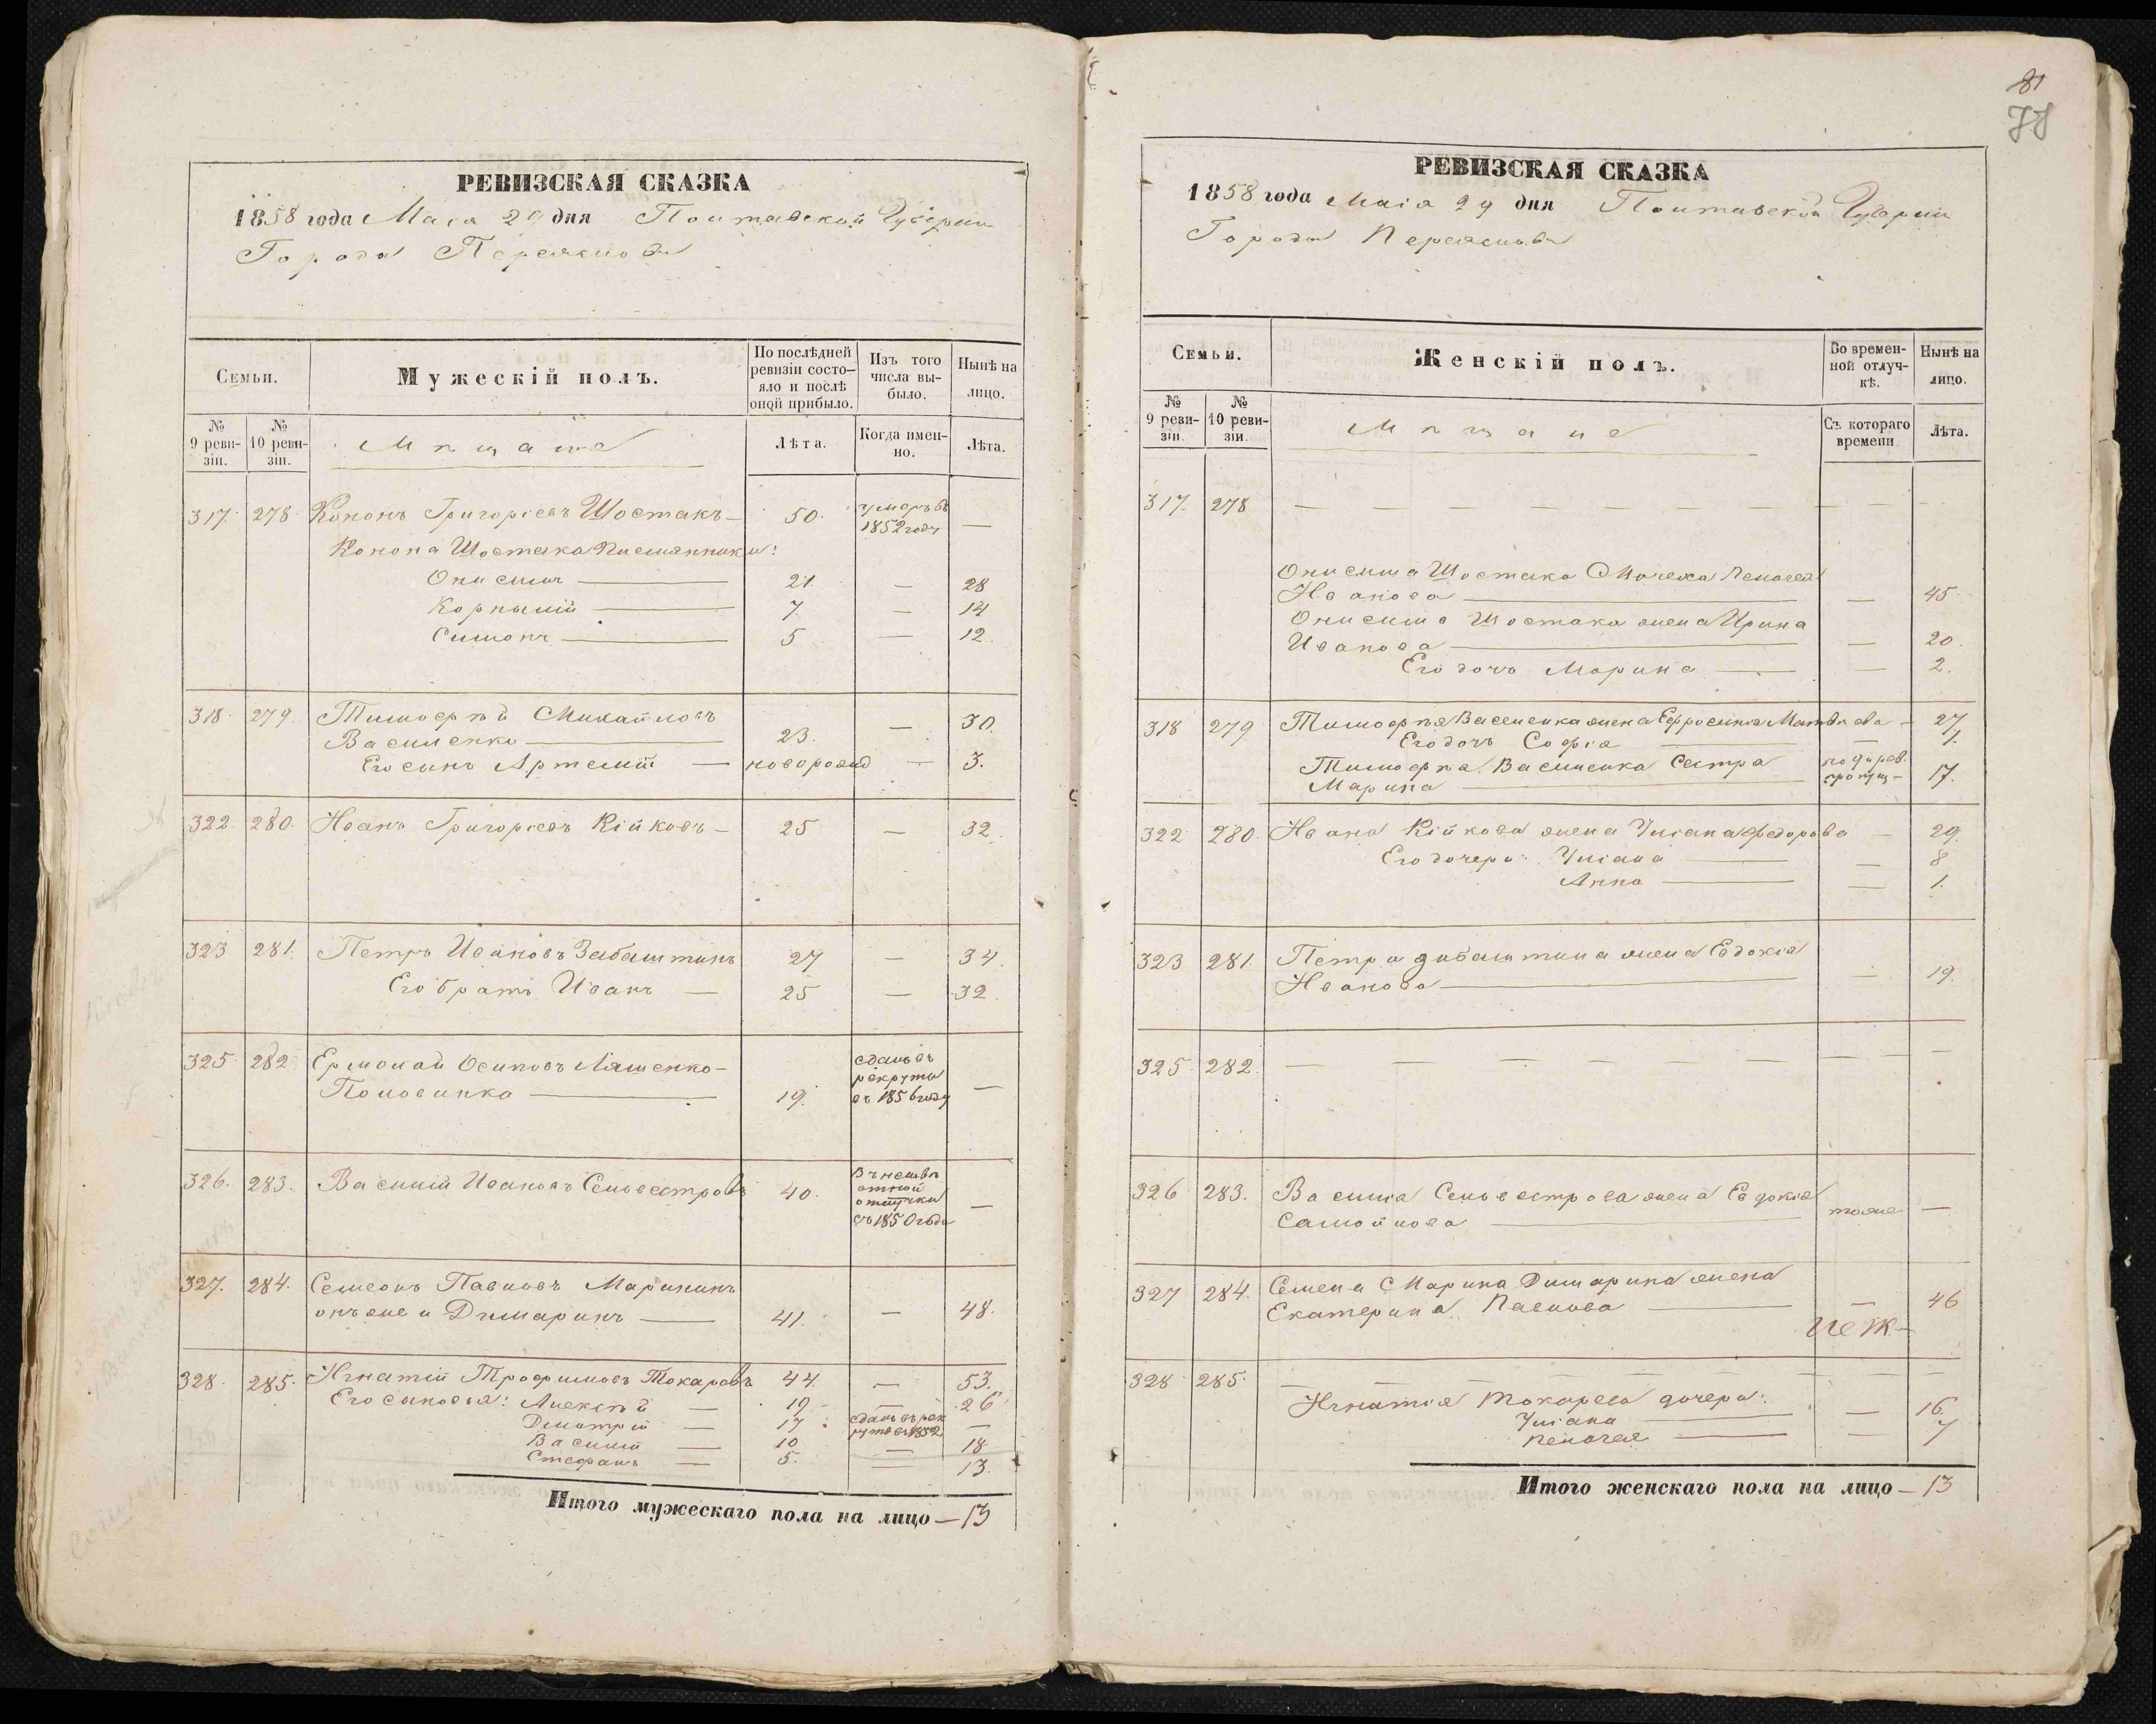 РЕВИЗСКАЯ СКАЗКА
1858 года Маія 29 дня Полтавской Губерніи
Города Переяслова
Семьи.
Мужескій полъ.
По послѣдней ревизіи состо-
яло и послѣ
оной прибыло.
Изъ того
числа вы-
было.
Нынѣ на
лицо.
№ 9 реви-
зіи.
№ 10 реви-
зіи.
Мѣщане
Лѣта.
Когда имен-
но.
Лѣта.
317. 278 Кононъ Григорьевъ Шостакъ — 50. умеръ въ 1852 году —
Конона Шостака
Онисимъ — 21. — 28
Корнилій — 7. — 14
Симонъ — 5 — 12.
318. 279. Тимофѣй Михайловъ
Василенко — 23. — 30.
Его сынъ Артемій — новорожд — 3.
322. 280. Иванъ Григорьевъ Кійковъ — 25 — 32.
323 281. Петръ Ивановъ Забаштинъ 27 — 34.
Его братъ Иванъ — 25 — 32.
325 282 Ермолай Осиповъ Ляшенко-
Половинка — 19. сданъ въ рекруты въ 1856 году —
326. 283. Василій Ивановъ Селовестровъ 40. Въ неизвѣстной отлучки съ 1850 года —
327. 284. Семеонъ Павловъ Марининъ
онъ же и Димаринъ — 41. — 48.
328. 285. Игнатій Трофимовъ Токаревъ 44. — 53.
Его сыновья: Алексѣй — 19 — 26
Дмитрій — 17. сданъ въ рекруты въ 1852 —
Василій — 10 — 18
Стефанъ — 5. — 13.
Итого мужескаго пола на лицо — 13
81
78
РЕВИЗСКАЯ СКАЗКА
1858 года Маія 29 дня Полтавской Губерніи
Города Переяслова
Семьи.
Женскій полъ.
Во времен-
ной отлуч-
кѣ.
Нынѣ на
лицо.
№ 9 реви-
зіи.
№ 10 реви-
зіи.
Мѣщане
Съ котораго
времени
Лѣта.
317. 278 — — — — — — — — —
Онисима Шостака Мачеха Пелагея
Иванова — — 45
Онисима Шостака жена Ирина
Иванова — — 20.
Его дочь Марина — — 2.
318 279 Тимофѣя Василенка жена Ефросинія Матвѣева — 27
Его дочь Софія — — 1.
Тимофѣя Василенка Сестра
Марина — 17.
322 280. Ивана Кійкова жена Уліана Федорова — 29.
Его дочери: Уліана — — 8
Анна — — 1.
323 281. Петра Забаштина жена Евдокія
Иванова — — 19.
325 282. — — — — — — — —
326 283. Василія Селовестрова жена Евдокія
Самойлова — тоже —
327 284. Семена Марина Димарина жена
Екатерина Павлова — — 46
328 285. — — — — — — — —
Игнатія Токарева дочери:
Уліана — — 16.
Пелагея — — 7
Итого женскаго пола на лицо — 13